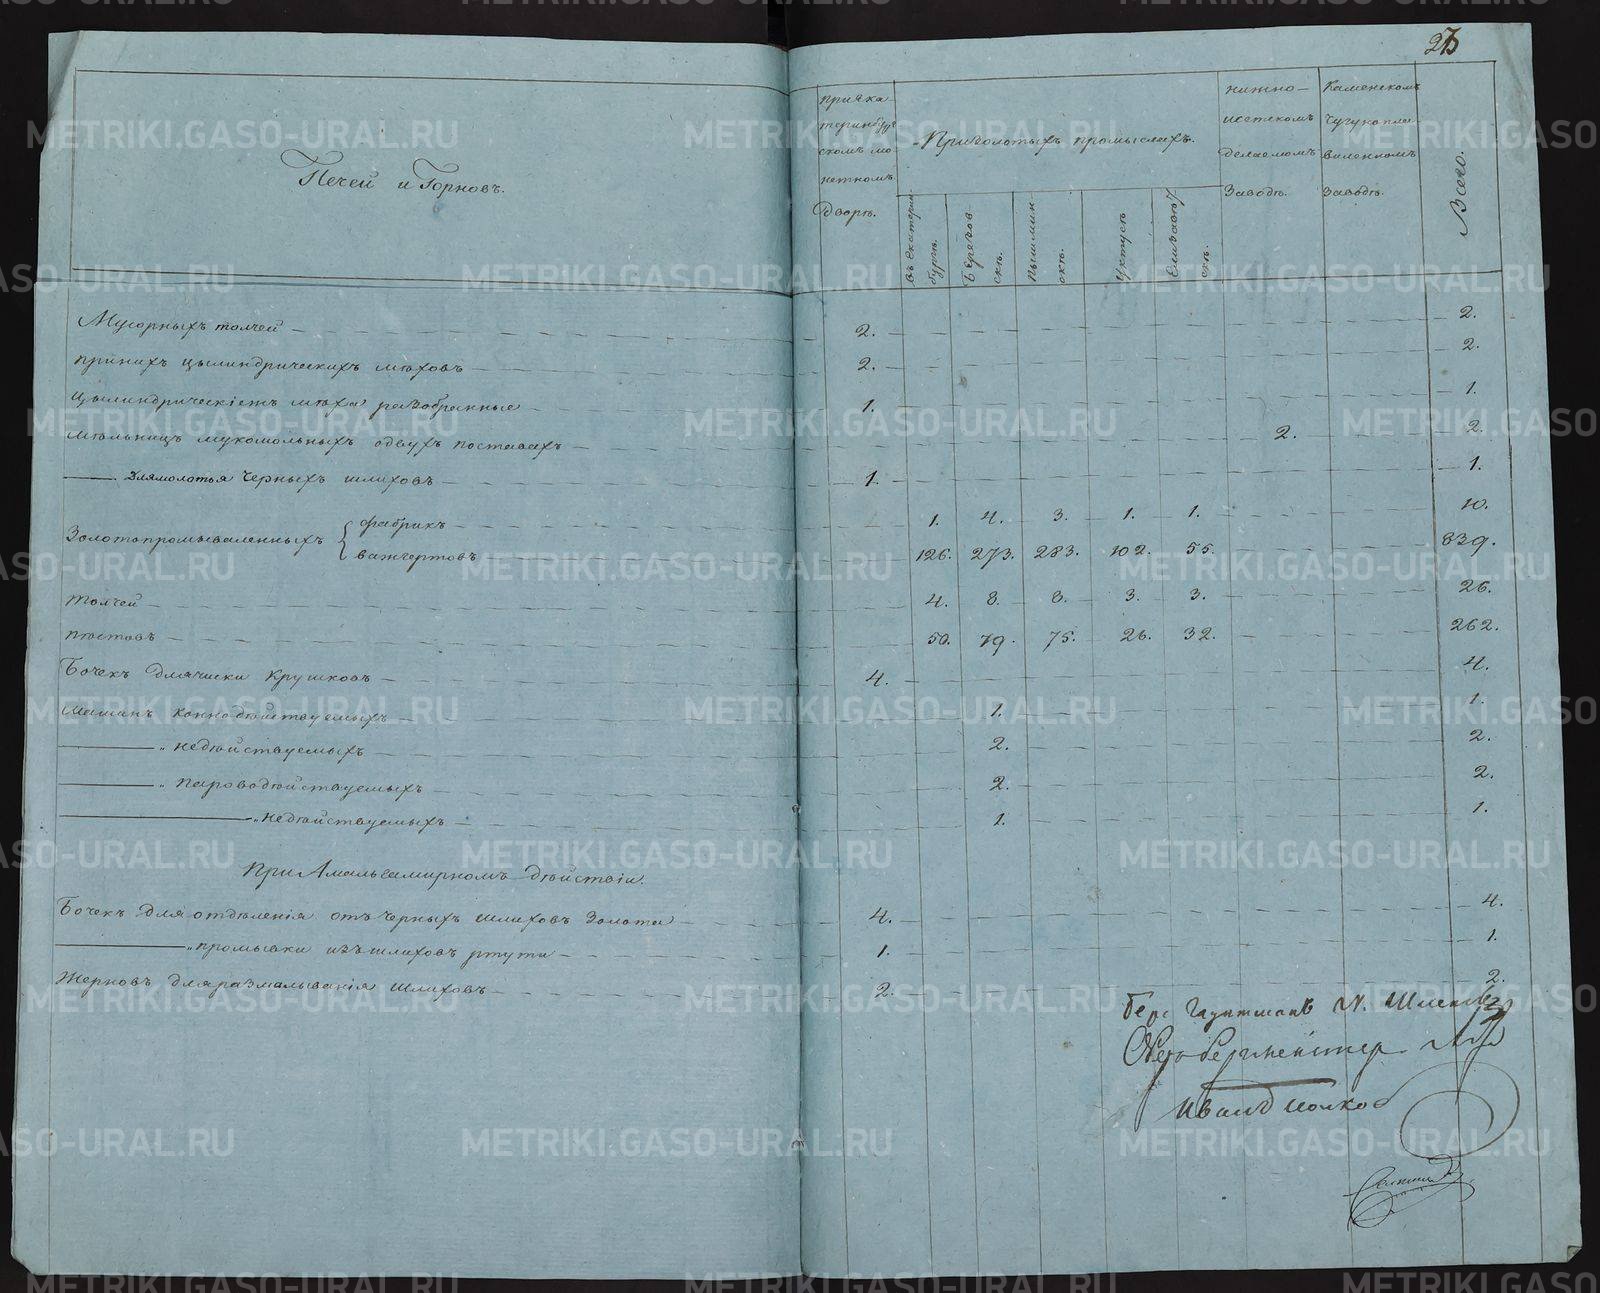 Печей и Горновъ.
При Ека-
теринбург-
скомъ мо-
нетномъ
Дворѣ.
При золотыхъ промыслахъ.
въ Екатерин-
бургѣ.
Березов-
скѣ.
Пышмин-
скѣ.
Уктусѣ
Елизавет-
скѣ.
Нижно-
исетскомъ
делаемомъ
Заводѣ.
Каменскомъ
чугунопла-
виленномъ
Заводѣ.
Всего.
Мусорныхъ толчей 2. 2.
При нихъ цылиндрическихъ мѣховъ 2. 2.
Цылиндрическіемъ мѣха разобранные 1. 1.
Мѣльницъ мукомольныхъ о двухъ поставахъ 2. 2.
Для молотья Черныхъ шлиховъ 1. 1.
Золотопромываленныхъ { фабрикъ 1. 4. 3. 1. 1. 10.
вашгертовъ 126. 273. 283. 102. 55. 839.
Толчей 4. 8. 8. 3. 3. 26.
пѣстовъ 50. 79. 75. 26. 32. 262.
Бочекъ для чиски Крушковъ 4. 4.
Машинъ коннодѣйствуемыхъ 1. 1.
" недѣйствуемыхъ 2. 2.
" пароводѣйствуемыхъ 2. 2.
" недѣйствуемыхъ 1. 1.
При Амальгамирномъ дѣйствіи.
Бочекъ для отдѣленія отъ Черныхъ шлиховъ Золота 4. 4.
" промывки изъ шлиховъ ртути 1. 1.
Жерновъ для размалыванія шлиховъ 2. 2.
Берг Гауптманъ
Обербергмейстер
Иванъ
METRIKI.GASO-URAL.RU